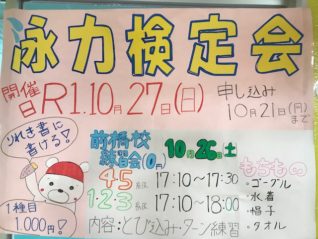 泳力検定会
開催日 R1.10月27日(日)
申し込み
10月21日(月)まで
りれき書に
書ける!
1種目
1,000円!
前橋校
練習会(0円)
10月26日土
4・5級 17:10〜17:30
1・2・3級 17:10〜18:00
内容:とび込み・ターン練習
もちもの
・ゴーグル
・水着
・帽子
・タオル